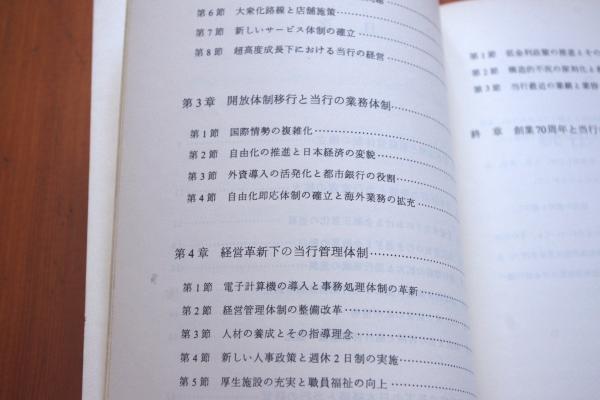 第6節 大衆化路線と店舗施策
第7節 新しいサービス体制の確立
第8節 超高度成長下における当行の経営
第3章 開放体制移行と当行の業務体制
第1節 国際情勢の複雑化
第2節 自由化の推進と日本経済の変貌
第3節 外資導入の活発化と都市銀行の役割
第4節 自由化即応体制の確立と海外業務の拡充
第4章 経営革新下の当行管理体制
第1節 電子計算機の導入と事務処理体制の革新
第2節 経営管理体制の整備改革
第3節 人材の養成とその指導理念
第4節 新しい人事政策と週休2日制の実施
第5節 厚生施設の充実と職員福祉の向上
第1節 低金利政策の推進とその
第2節 構造的不況の深刻化と
第3節 当行最近の業績と業
終章 創業70周年と当行の